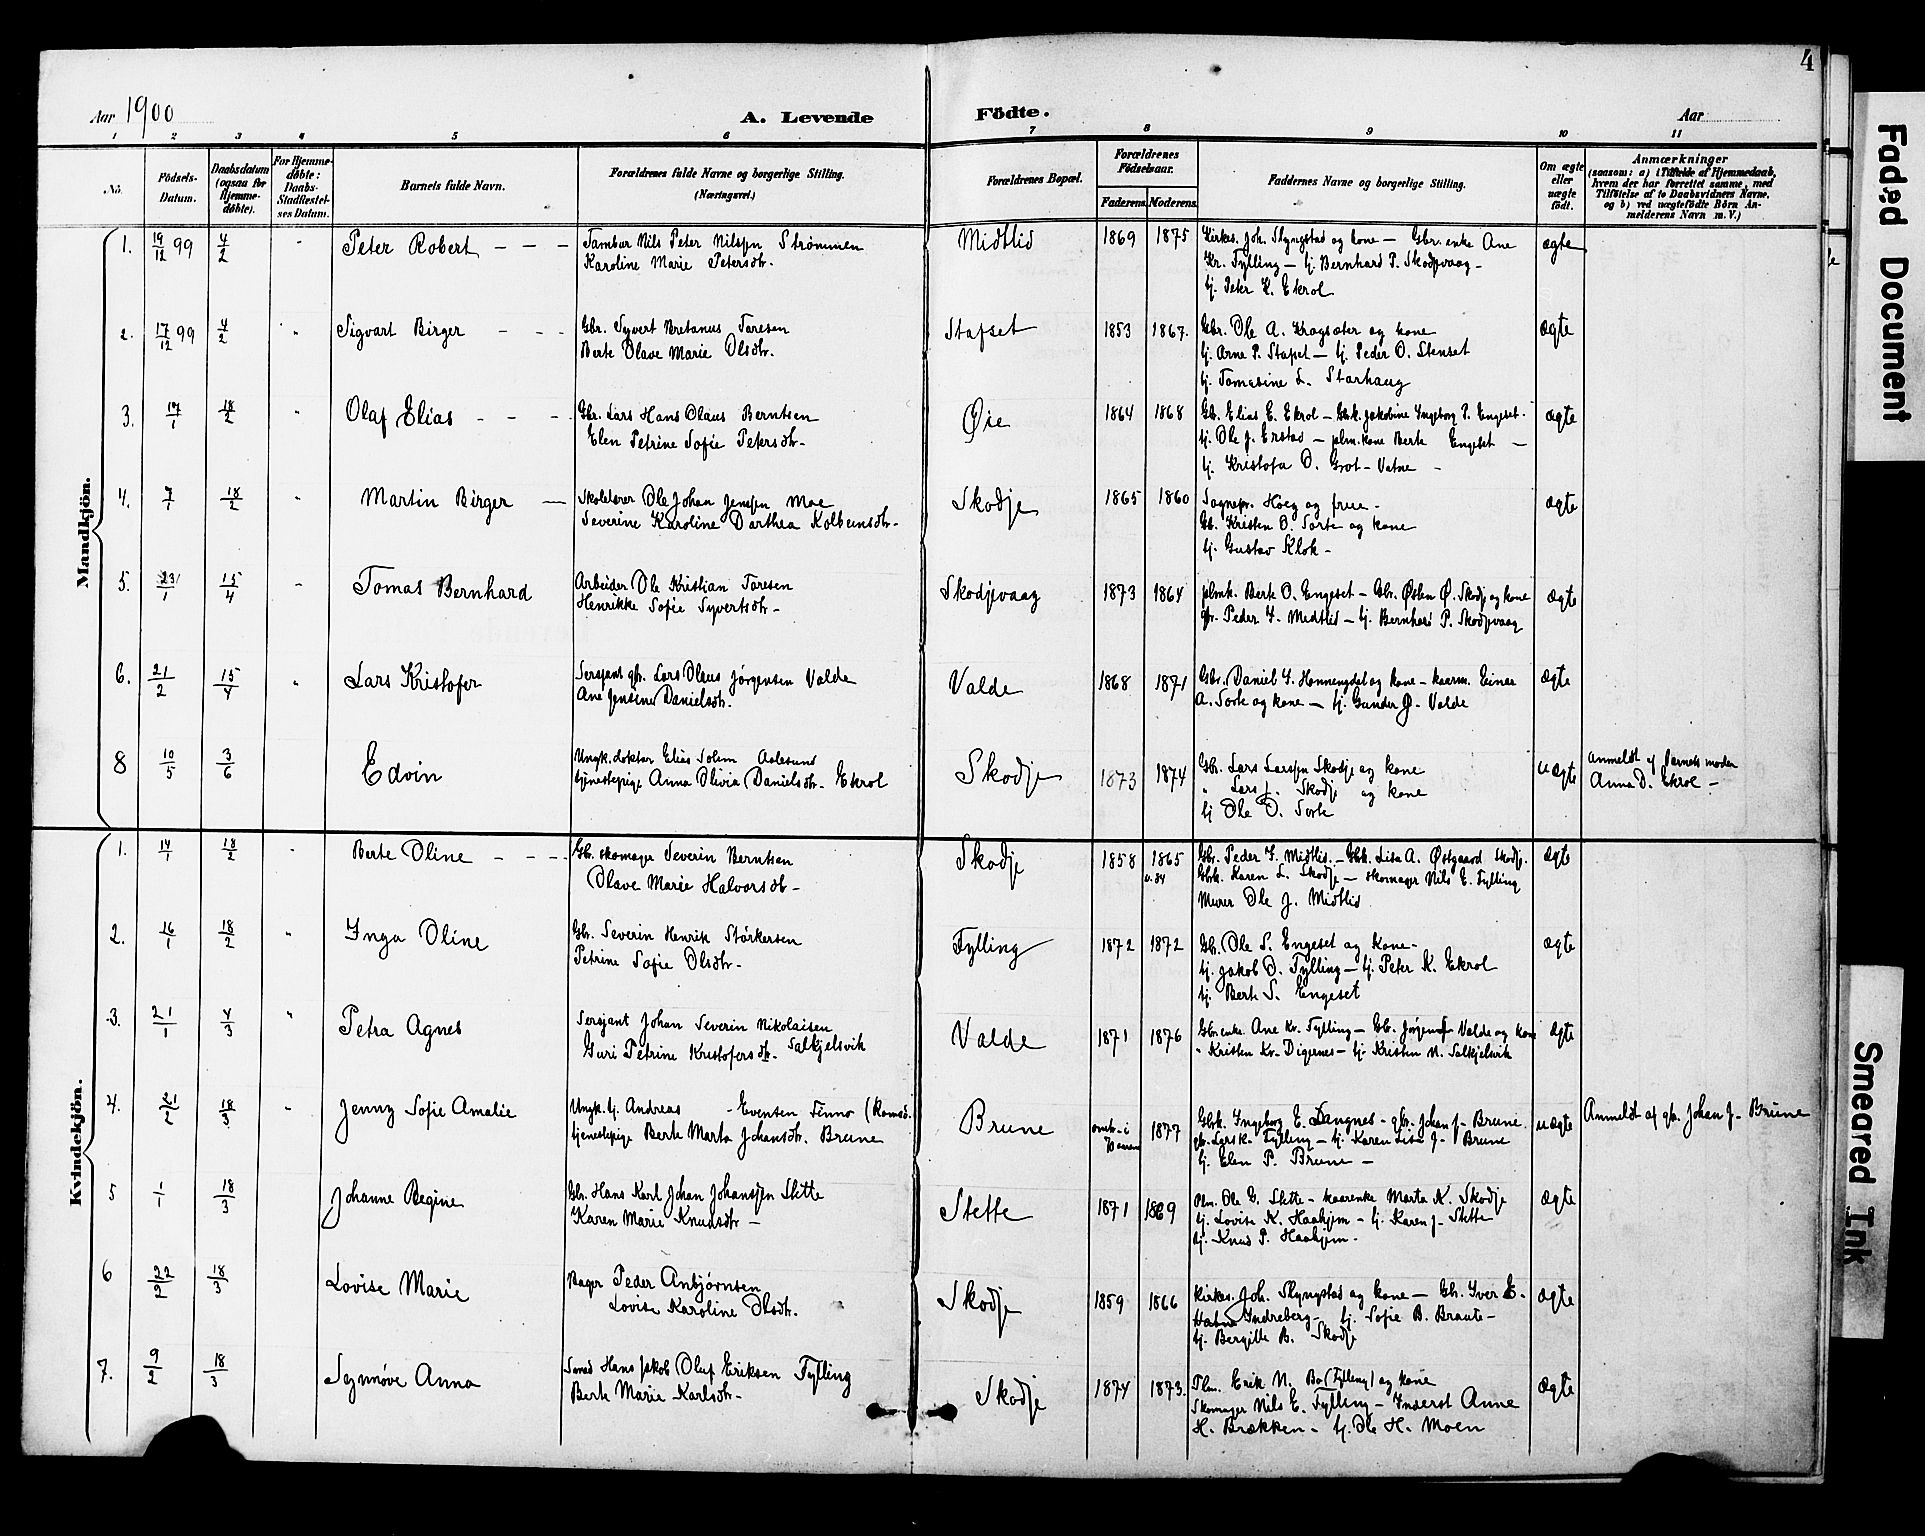 4
Aar 1900
A. Levende Födte.
Aar
1 2 3 4 5 6 7 8 9 10 11
No.
Födsels-Datum.
Daabsdatum (ogsaa for Hjemme-døbte).
For Hjemme-døbte: Daabs-Stadfæstel-ses Datum.
Barnets fulde Navn.
Forældrenes fulde Navne og borgerlige Stilling. (Næringsvei.)
Forældrenes Bopæl.
Forældrenes Födselsaar.
Faderens. Moderens.
Faddernes Navne og borgerlige Stilling.
Om ægte eller uægte født.
Anmærkninger
(saasom: a) i Tilfælde af Hjemmedaab,
hvem der har forrettet samme, med
Tilføielse af to Daabsvidners Navne,
og b) ved uægtefødte Börn An-
melderens Navn m. V.)
Mandkjön.
1. 19/12 99 4/2 " Peter Robert - - - Tambur Nils Peter Nilssen Strømmen Midtlid 1869 1875 Kirkes. Joh. Slyngstad og kone - Gbr. enke Ane ægte
Karoline Marie Petersdtr. Kr. Fylling - tj. Bernhard P. Skodjevaag -
tj. Peter K. Ekrol
2. 17/12 99 4/2 " Sigvart Birger - - - Gbr. Syvert Bretanus Taresen Stafset 1853 1867. Gbr. Ole A. Kragsæter og kone ægte
Berte Olave Marie Olsdtr. tj. Arne P. Stafset - tj. Peder O. Stenset
tj. Tomasine L. Storhaug
3. 17/1 18/2 " Olaf Elias - - - Gbr. Lars Hans Olaus Berntsen Øie 1864 1868 Gbr. Elias E. Ekrol - Gbk. Jakobine Ingeborg P. Engeset - ægte
Elen Petrine Sofie Petersdtr - tj. Ole J. Erstad - plm. kone Berte Engeset -
tj. Kristofa O. Grot-Vatne -
4. 7/1 18/2 " Martin Birger - Skolelærer Ole Johan Jenssen Moe Skodje 1865 1860 Sognepr. Hoeg og frue - ægte
Severine Karoline Dorthea Kolbeinsdtr - Gb. Kristen O. Sorte og kone
tj. Gustav Klok -
5. 23/1 15/4 " Tomas Bernhard Arbeider Ole Kristian Taresen Skodjevaag 1873 1864 plmk. Berte O. Engeset - Gbr. Østen Ø. Skodje og kone ægte
Henrikke Sofie Syvertsdtr - gbr. Peder I. Midtlid - tj. Bernhard P. Skodjevaag
6. 21/2 15/4 " Lars Kristofer Sersjant gbr. Lars Olaus Jørgensen Valde Valde 1868 1871 Gbr. Daniel I. Honningdal og kone - kaarm. Einar ægte
Ane Jensine Danielsdtr. A. Sorte og kone - tj. Gunder J. Valde
8 10/5 3/6 Edvin Ungk. doktor Elias Solem Aalesund Skodje 1873 1874 Gbr. Lars Larssen Skodje og kone uægte anmeldt af barnets moder
tjenestepige Anna Olivia Danielsdtr. Ekrol " Lars J. Skodje og kone Anna D. Ekrol -
tj Ole O. Sorte
Kvindekjön.
1. 14/1 18/2 " Berte Oline - - - Gbr. skomager Severin Berntsen Skodje 1858 1865 Gbr. Peder I. Midtlid. - Gbk. Lisa A. Østgaard Skodje. ægte
Olave Marie Halvorsdtr - Gbrk. Karen L. Skodje - skomager Nils E. Fylling
Murer Ole J. Midtlid
2. 16/1 18/2 " Inga Oline Gbr. Severin Henrik Størkersen Fylling 1872 1872 Gbr. Ole S. Engeset og kone - ægte
Petrine Sofie Olsdtr - tj. Jakob O. Fylling - tj. Peter K. Ekrol
tj. Berte S. Engeset
3. 21/1 4/3 " Petra Agnes Sersjant Johan Severin Nikolaisen Valde 1871 1876 Gbr enke Ane Kr. Fylling - Gbr. Jørgen J. Valde og kone ægte
Guri Petrine Kristofersdtr. Salkjelsvik " Kristen Kr. Digernes - tj. Kristen N. Salkjelsvik
4. 21/2 18/3 " Jenny Sofie Amalie Ungk. tj. Andreas - Evensen Finno (Romsd. Brune 1877 Gbrk. Ingeborg E. Langnes - gbr. Johan J. Brune uægte Anmeldt af gbr. Johan J. Brune
tjenestepige Berte Marta Johansdtr. Brune gbr. Lars K. Fylling - tj. Karen Lisa J. Brune
tj. Elen P. Brune -
5 1/1 18/3 Johanne Regine Gbr. Hans Karl Johan Johanssen Stette Stette 1871 1869 Plm. Ole G. Stette - kaarenke Marta K. Skodje ægte
Karen Marie Knudsdtr - tj. Lovise K. Haahjem - tj. Karen J. Stette
tj. Knud P. Haahjem -
6 22/2 18/3 Lovise Marie Bager Peder Anbjørnsen Skodje 1859 1866 Kirkes. Joh. Slyngstad og kone - Gbr. Iver E. ægte
Lovise Karoline Olsdtr. Indreberg - tj. Sofie B. Braute -
tj. Bergitte B. Skodje
7. 9/2 18/3 Synnøve Anna Smed Hans Jakob Oluf Eriksen Fylling Skodje 1874 1873. Plm. Erik N. Bo (Fylling) og kone ægte
Berte Marie Karlsdtr - Skomager Nils E. Fylling - Inderst Anne
H. Brækken - tj. Ole H. Moen
Faded Document
Smeared Ink